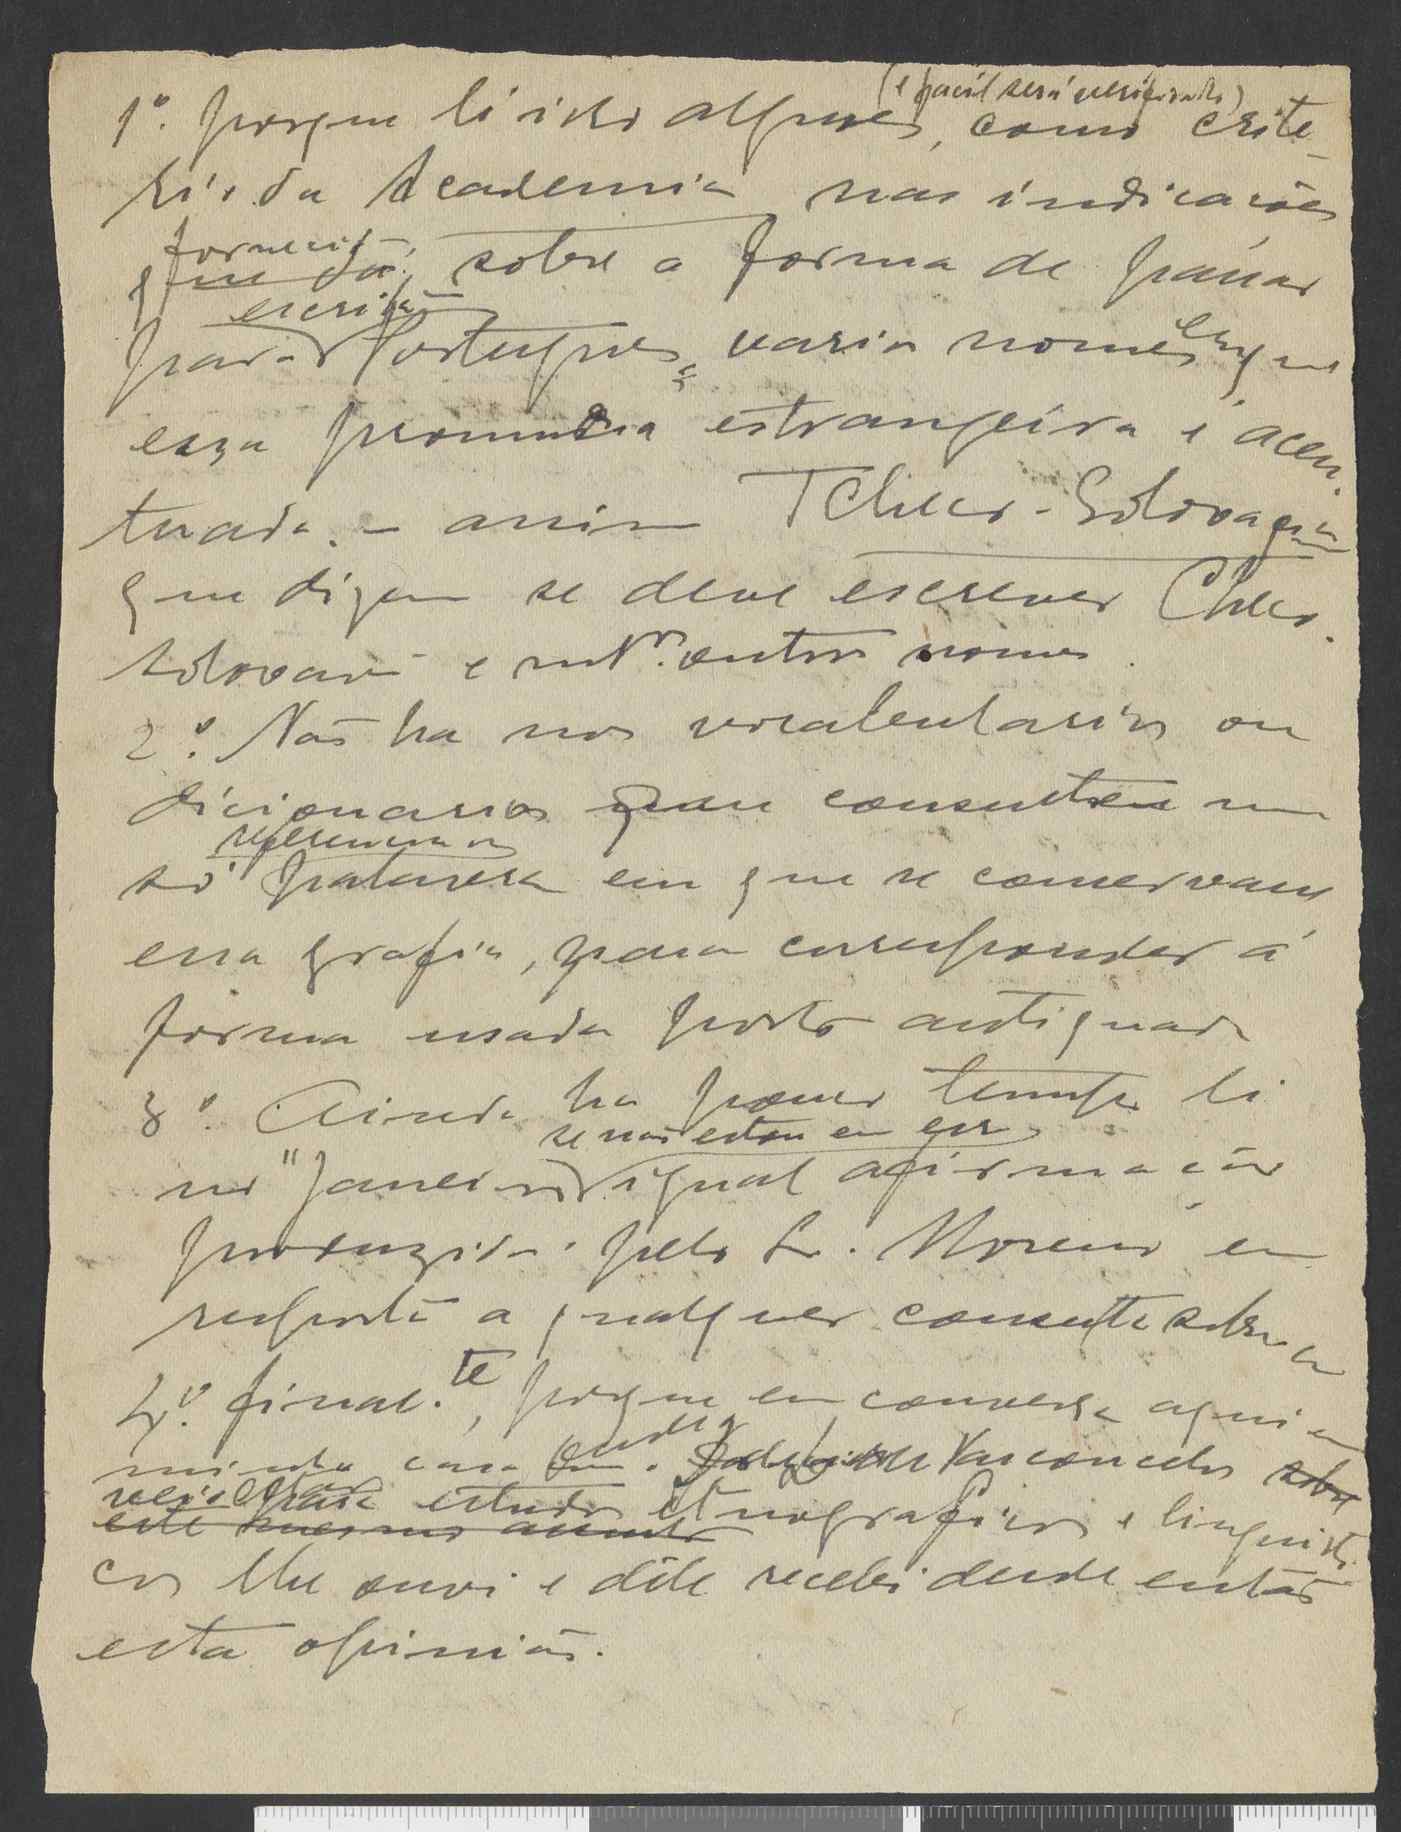 (e facil será verificado)
1º. porque li isto algures, como crite-
rio da Academia nas indicações
fornecid
que dá, sobre a forma de passar
escrita
para Portugues, varios nomes em que
essa pronuncia estrangeira é acen-
tuada. – assim Tcheco-Eslovaquia
que dizem se deve escrever Checo-
slovaqui e mtºs. outros nomes.
2º. Não ha nos vocabularios ou
dicionarios que consultei uma
referencia
só palavra em que se conservasse
essa grafia, para corresponder á
forma usada posto antiquada
3º. Ainda ha pouco tempo li
se não estou em erro
no "Janeiro" igual afirmação
produzida pelo Sr. Moreno em
resposta a qualquer consulta sobre
4º. final.te, porque em conversa aqui em
minha casa onde Vasconcelos sobre
estudos etnograficos e linguisti-
este mesmo assunto
cos lhe ouvi e dêle recebi desde então
esta opinião.